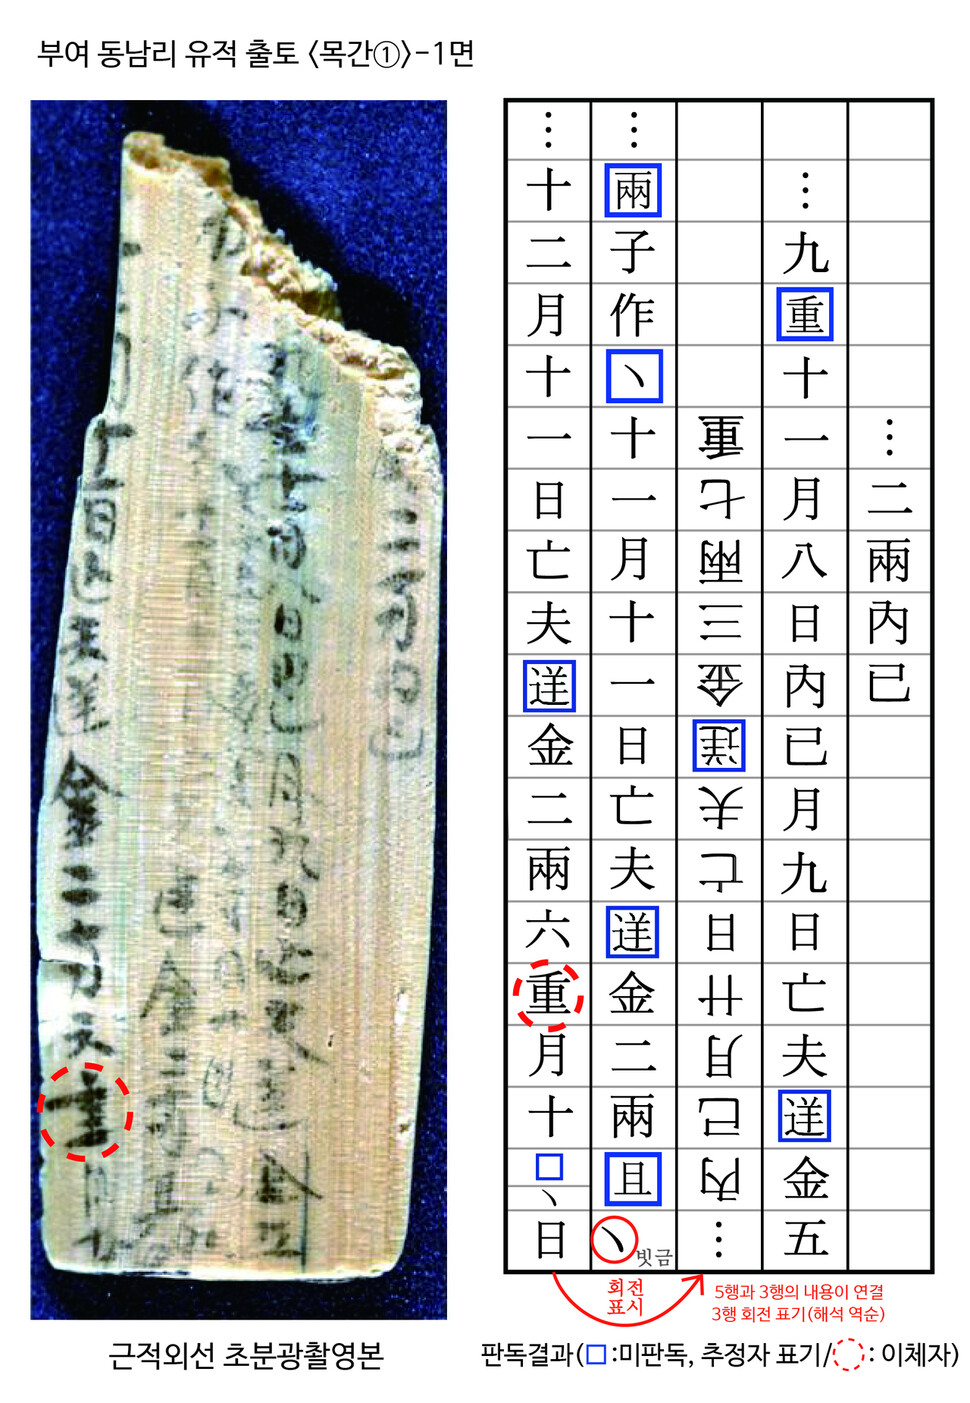 부여 동남리 유적 출토 〈목간①〉-1면
⋮二兩內已
⋮九重十一月八日內已月九日亡夫金五
⋮內已月卄日亡夫金三兩七重
⋮兩子作丶十一月十一日亡夫金二兩且丶
빗금
⋮十二月十一日亡夫金二兩六重月十□丶日
회전
표시
5행과 3행의 내용이 연결
3행 회전 표기(해석 역순)
근적외선 초분광촬영본
판독결과(□:미판독, 추정자 표기/◌: 이체자)